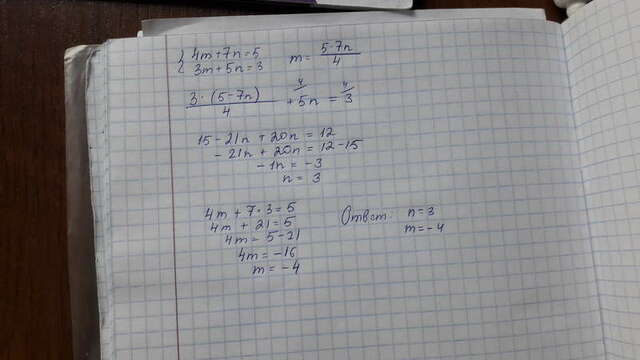 { 4m+7n=5
3m+5n=3
m= 5-7n / 4
3·(5-7n) / 4 + 5n = 3
4 4
15-21n+20n=12
-21n+20n=12-15
-1n=-3
n=3
4m+7·3=5
4m+21=5
4m=5-21
4m=-16
m=-4
Ответ: n=3
m=-4